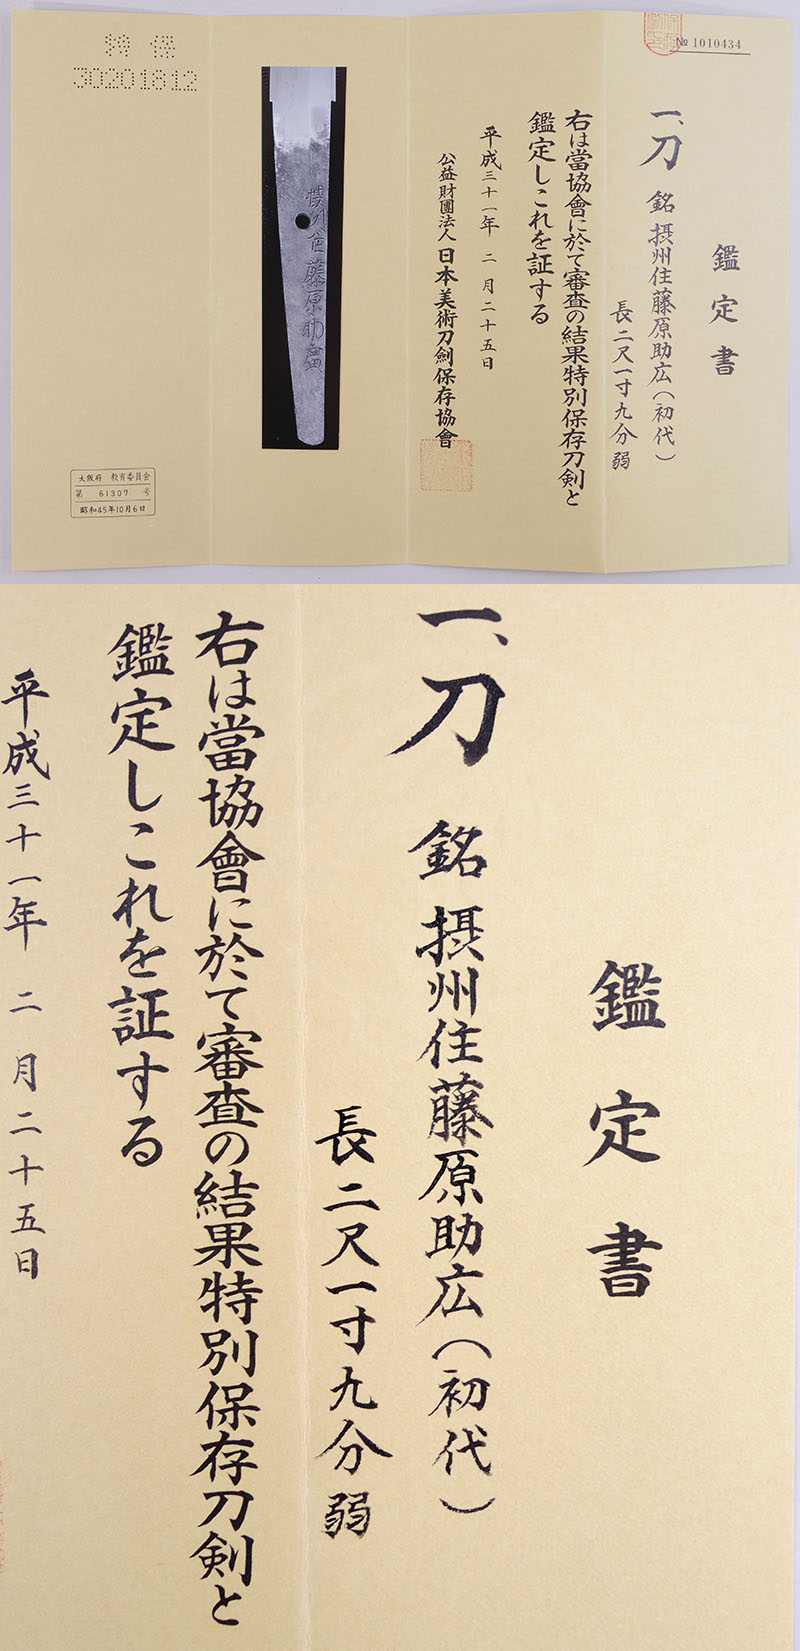 № 1010434
鑑定書
一、刀 銘 摂州住藤原助広（初代）
長二尺一寸九分弱
右は當協會に於て審査の結果特別保存刀剣と
鑑定しこれを証する
平成三十一年 二月二十五日
公益財團法人 日本美術刀剣保存協會
摂州住藤原助廣
特保
30201812
大阪府 教育委員会
第 61307 号
昭和45年10月6日
鑑定書
一、刀 銘 摂州住藤原助広（初代）
長二尺一寸九分弱
右は當協會に於て審査の結果特別保存刀剣と
鑑定しこれを証する
平成三十一年 二月二十五日